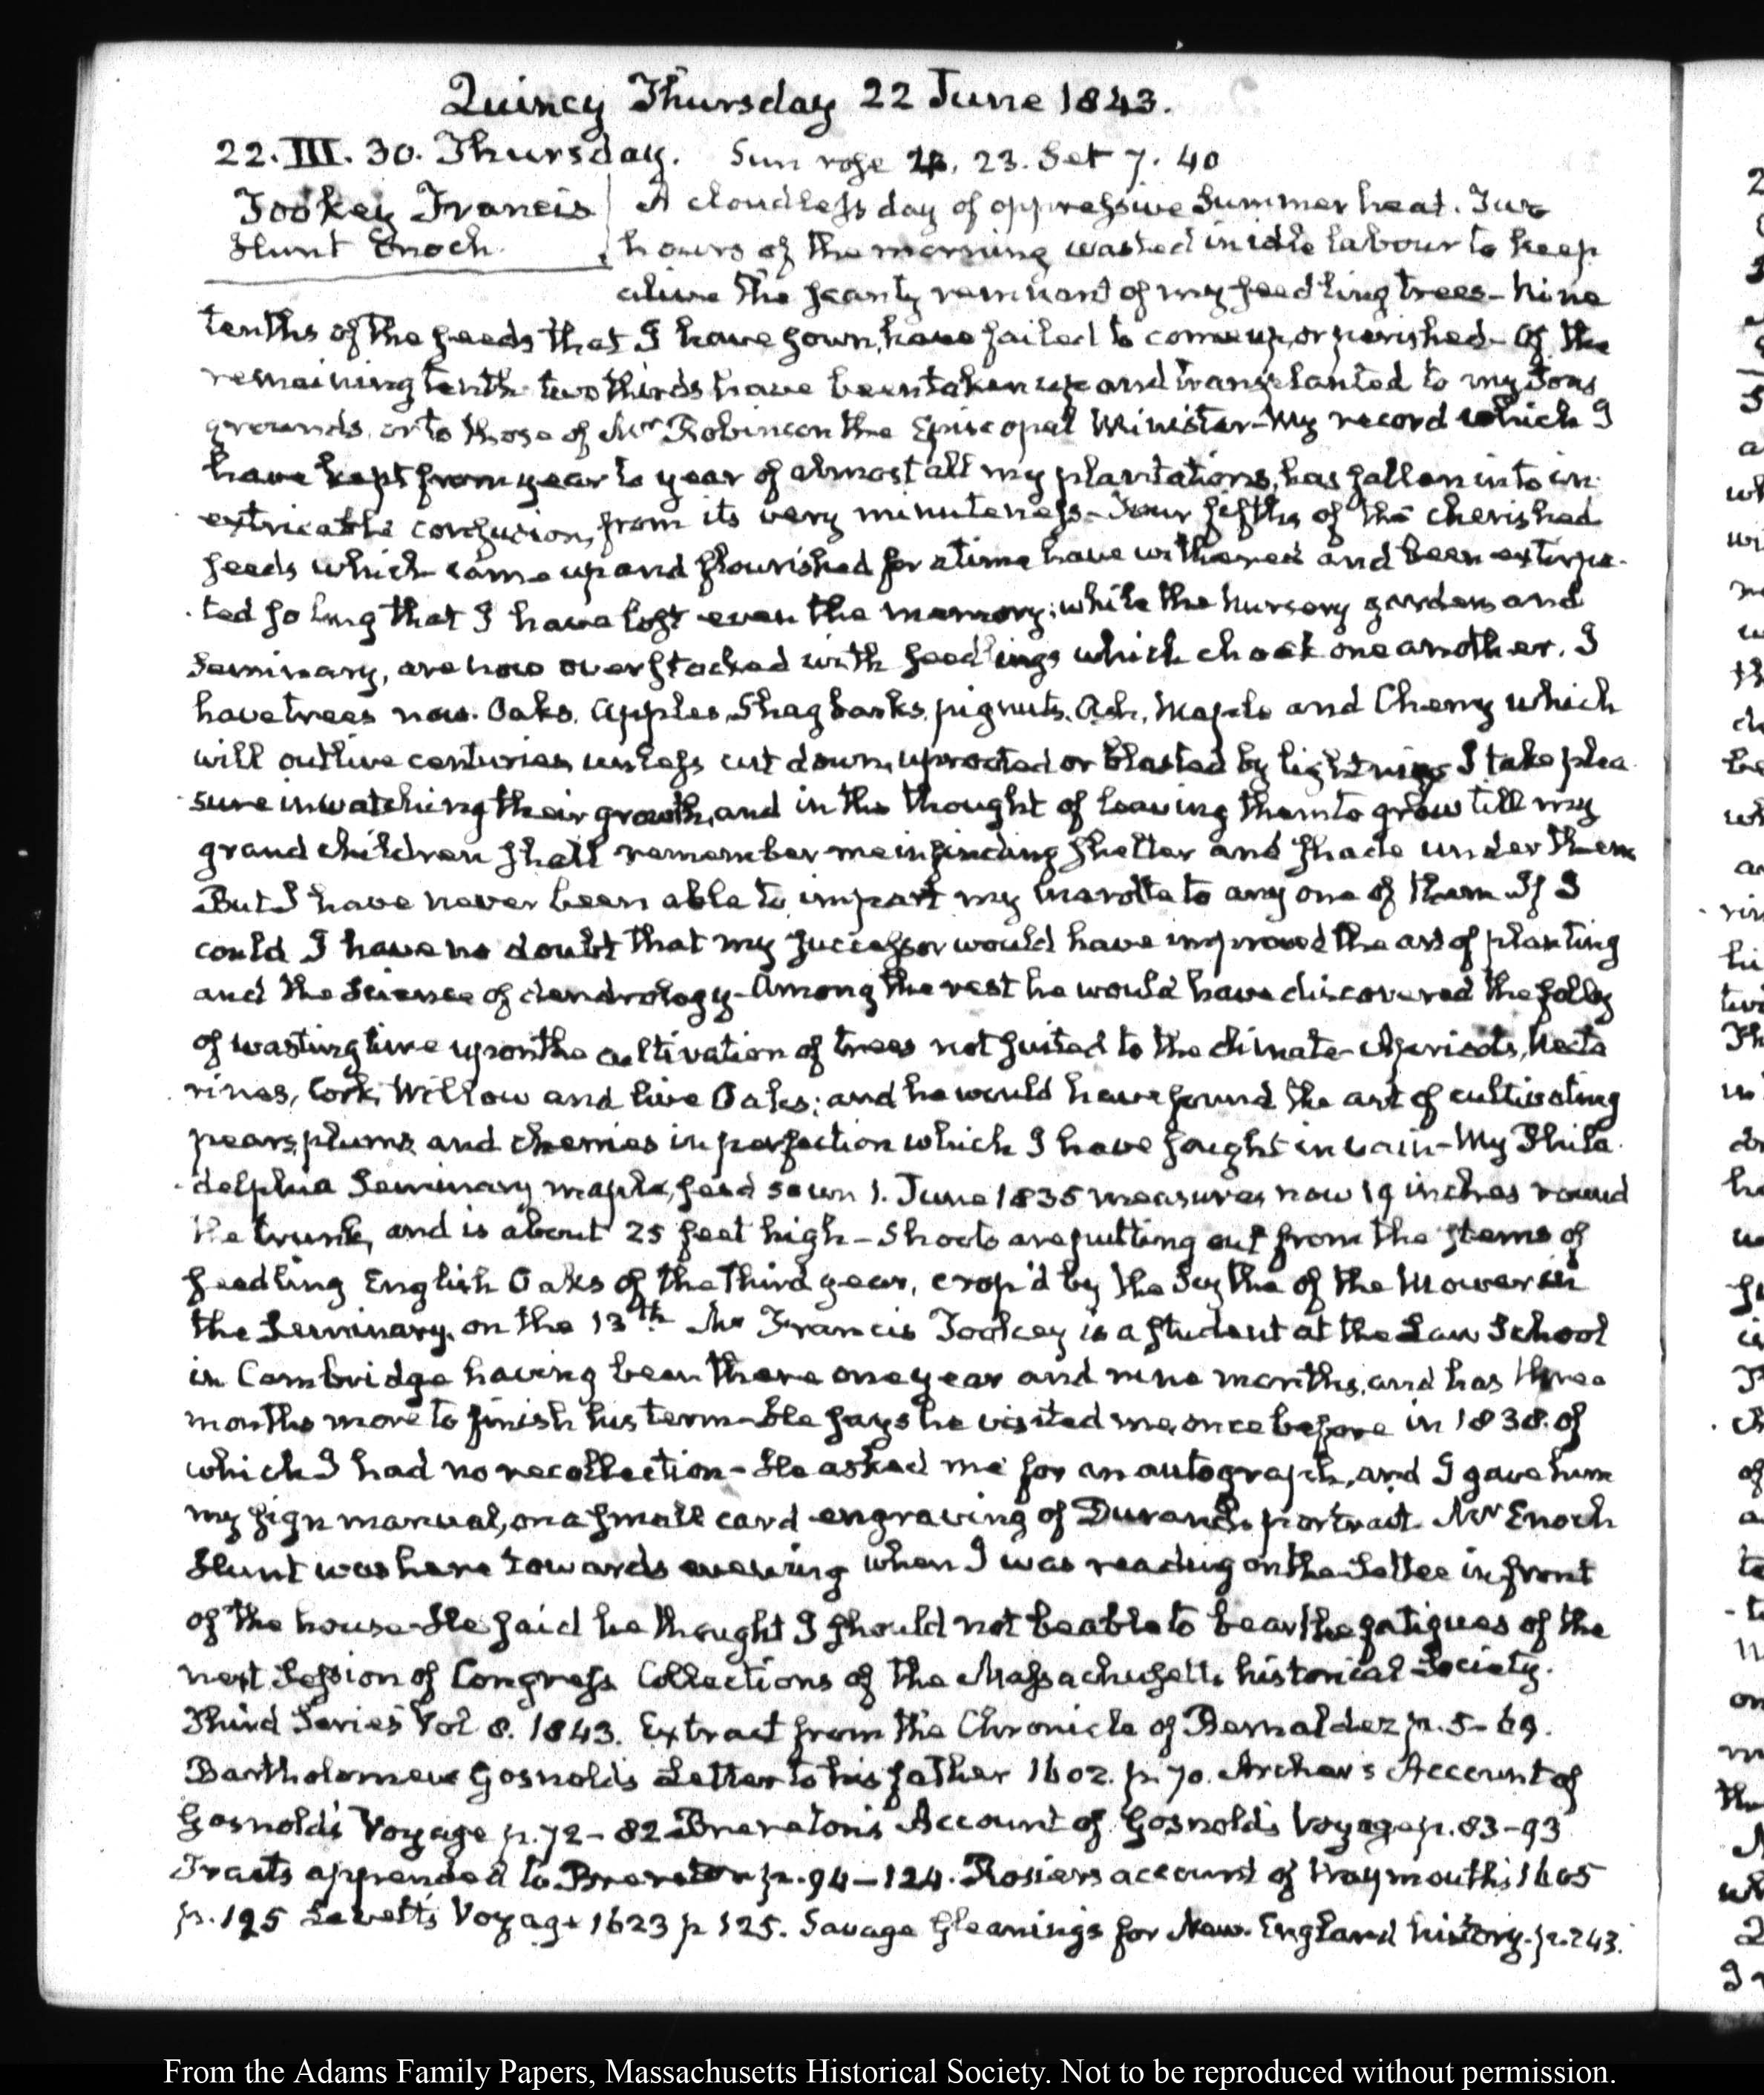 Quincy Thursday 22 June 1843.
22. III. 30. Thursday. Sun rose 4. 23. Set 7. 40
Tookey Francis
Hunt Enoch.
A cloudless day of oppressive Summer heat. Two
hours of the morning wasted in idle labour to keep
alive the scanty remnant of my seedling trees - Nine
tenths of the seeds that I have sown, have failed to come up, or perished - Of the
remaining tenth two thirds have been taken up and transplanted to my Sons
grounds, or to those of Mr Robinson the Episcopal Minister - My record which I
have kept from year to year of almost all my plantations, has fallen into in-
extricable confusion, from its very minuteness - Four fifths of the cherished
seeds which came up and flourished for a time have withered and been extirpa-
ted so long that I have lost even the memory; while the Nursery garden and
Seminary, are now overstocked with seedlings which choak one another. I
have trees now. Oaks, Apples, Shagbarks, pignuts, Ash, Maple and Cherry which
will outlive centuries, unless cut down, uprooted or blasted by lightning I take plea-
sure in watching their growth, and in the thought of leaving them to grow till my
grand children shall remember me in finding shelter and shade under them
But I have never been able to impart my marotte to any one of them If I
could I have no doubt that my successor would have improved the art of planting
and the Science of dendrology - Among the rest he would have discovered the folly
of wasting time upon the cultivation of trees not suited to the climate - Apricots, Necta
rines, Cork, Willow and live Oaks; and he would have found the art of cultivating
pears, plums, and cherries in perfection which I have sought in vain - My Phila-
delphia Seminary maple, seed sown 1. June 1835 measures now 19 inches round
the trunk, and is about 25 feet high - Shoots are putting out from the stems of
seedling English Oaks of the third year, crop'd by the Scythe of the Mower in
the Seminary, on the 13th Mr Francis Tookey is a student at the Law School
in Cambridge having been there one year and nine months, and has three
months more to finish his term - He says he visited me, once before in 1838. of
which I had no recollection - He asked me for an autograph, and I gave him
my sign manual, on a small card engraving of Durand's portrait. Mr Enoch
Hunt was here towards evening when I was reading on the Settee in front
of the house - He said he thought I should not be able to bear the fatigues of the
next Session of Congress Collections of the Massachusetts historical Society.
Third Series Vol 8. 1843. Extract from the Chronicle of Bernaldez p. 5-69.
Bartholomew Gosnold's Letter to his father 1602. p. 70. Archer's Account of
Gosnold's Voyage p. 72-82 Brereton's Account of Gosnold's Voyage p. 83-93
Tracts appended to Brereton p. 94-124. Rosier's account of Waymouth's 1605
p. 125 Levett's Voyage 1623 p 125. Savage Gleanings for New-England history. p. 243.
From the Adams Family Papers, Massachusetts Historical Society. Not to be reproduced without permission.